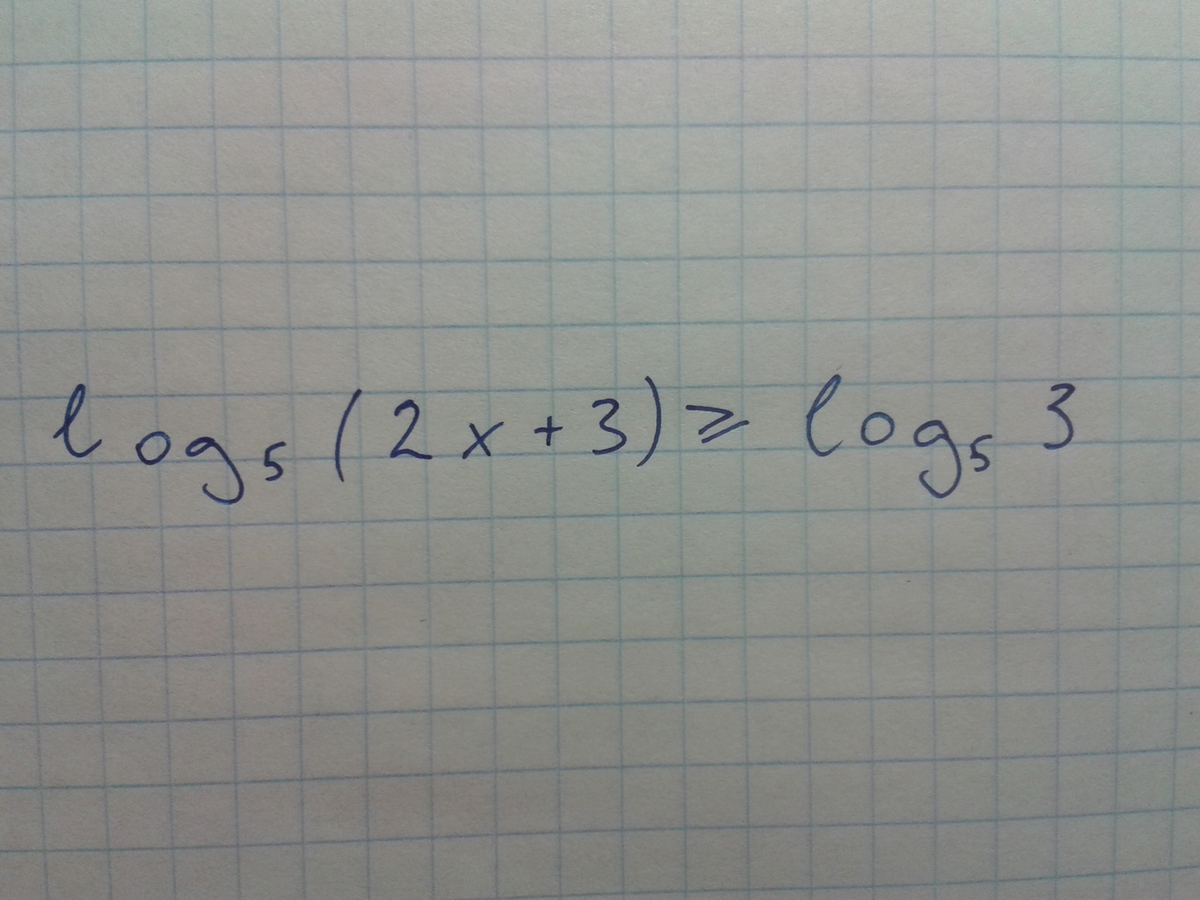 log₅(2x+3)≥log₅3